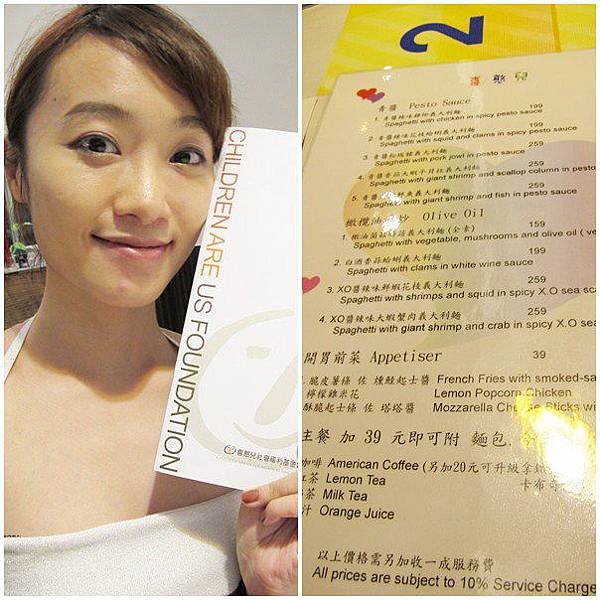 CHILDREN ARE US FOUNDATION
喜憨兒社會福利基金會
2
喜憨兒
青醬 Pesto Sauce
1. 青醬辣味雞柳義大利麵 199
Spaghetti with chicken in spicy pesto sauce
2. 青醬辣味花枝蛤蜊義大利麵 199
Spaghetti with squid and clams in spicy pesto sauce
3. 青醬松阪豬義大利麵 259
Spaghetti with pork jowl in pesto sauce
4. 青醬香蒜大蝦干貝柱義大利麵 259
Spaghetti with giant shrimp and scallop column in pesto
5. 青醬 鮮魚義大利麵 259
Spaghetti with giant shrimp and fish in pesto sauce
橄欖油 炒 Olive Oil
1. 橄油 義大利麵(全素) 159
Spaghetti with vegetable, mushrooms and olive oil ( ve
2. 白酒香蒜蛤蜊義大利麵 199
Spaghetti with clams in white wine sauce
3. XO醬辣味鮮蝦花枝義大利麵 259
Spaghetti with shrimps and squid in spicy X.O sea
4. XO醬辣味大蝦蟹肉義大利麵 259
Spaghetti with giant shrimp and crab in spicy X.O sea
開胃前菜 Appetiser 39
脆皮薯條 佐 燻鮭起士醬 French Fries with smoked-sa
檸檬雞米花 Lemon Popcorn Chicken
酥脆起士條 佐 塔塔醬 Mozzarella Cheese Sticks wi
主餐 加 39 元即可附 麵包.
咖啡 American Coffee (另加20元可升級拿鐵
卡布奇
紅茶 Lemon Tea
茶 Milk Tea
汁 Orange Juice
以上價格需另加收一成服務費
All prices are subject to 10% Service Charge